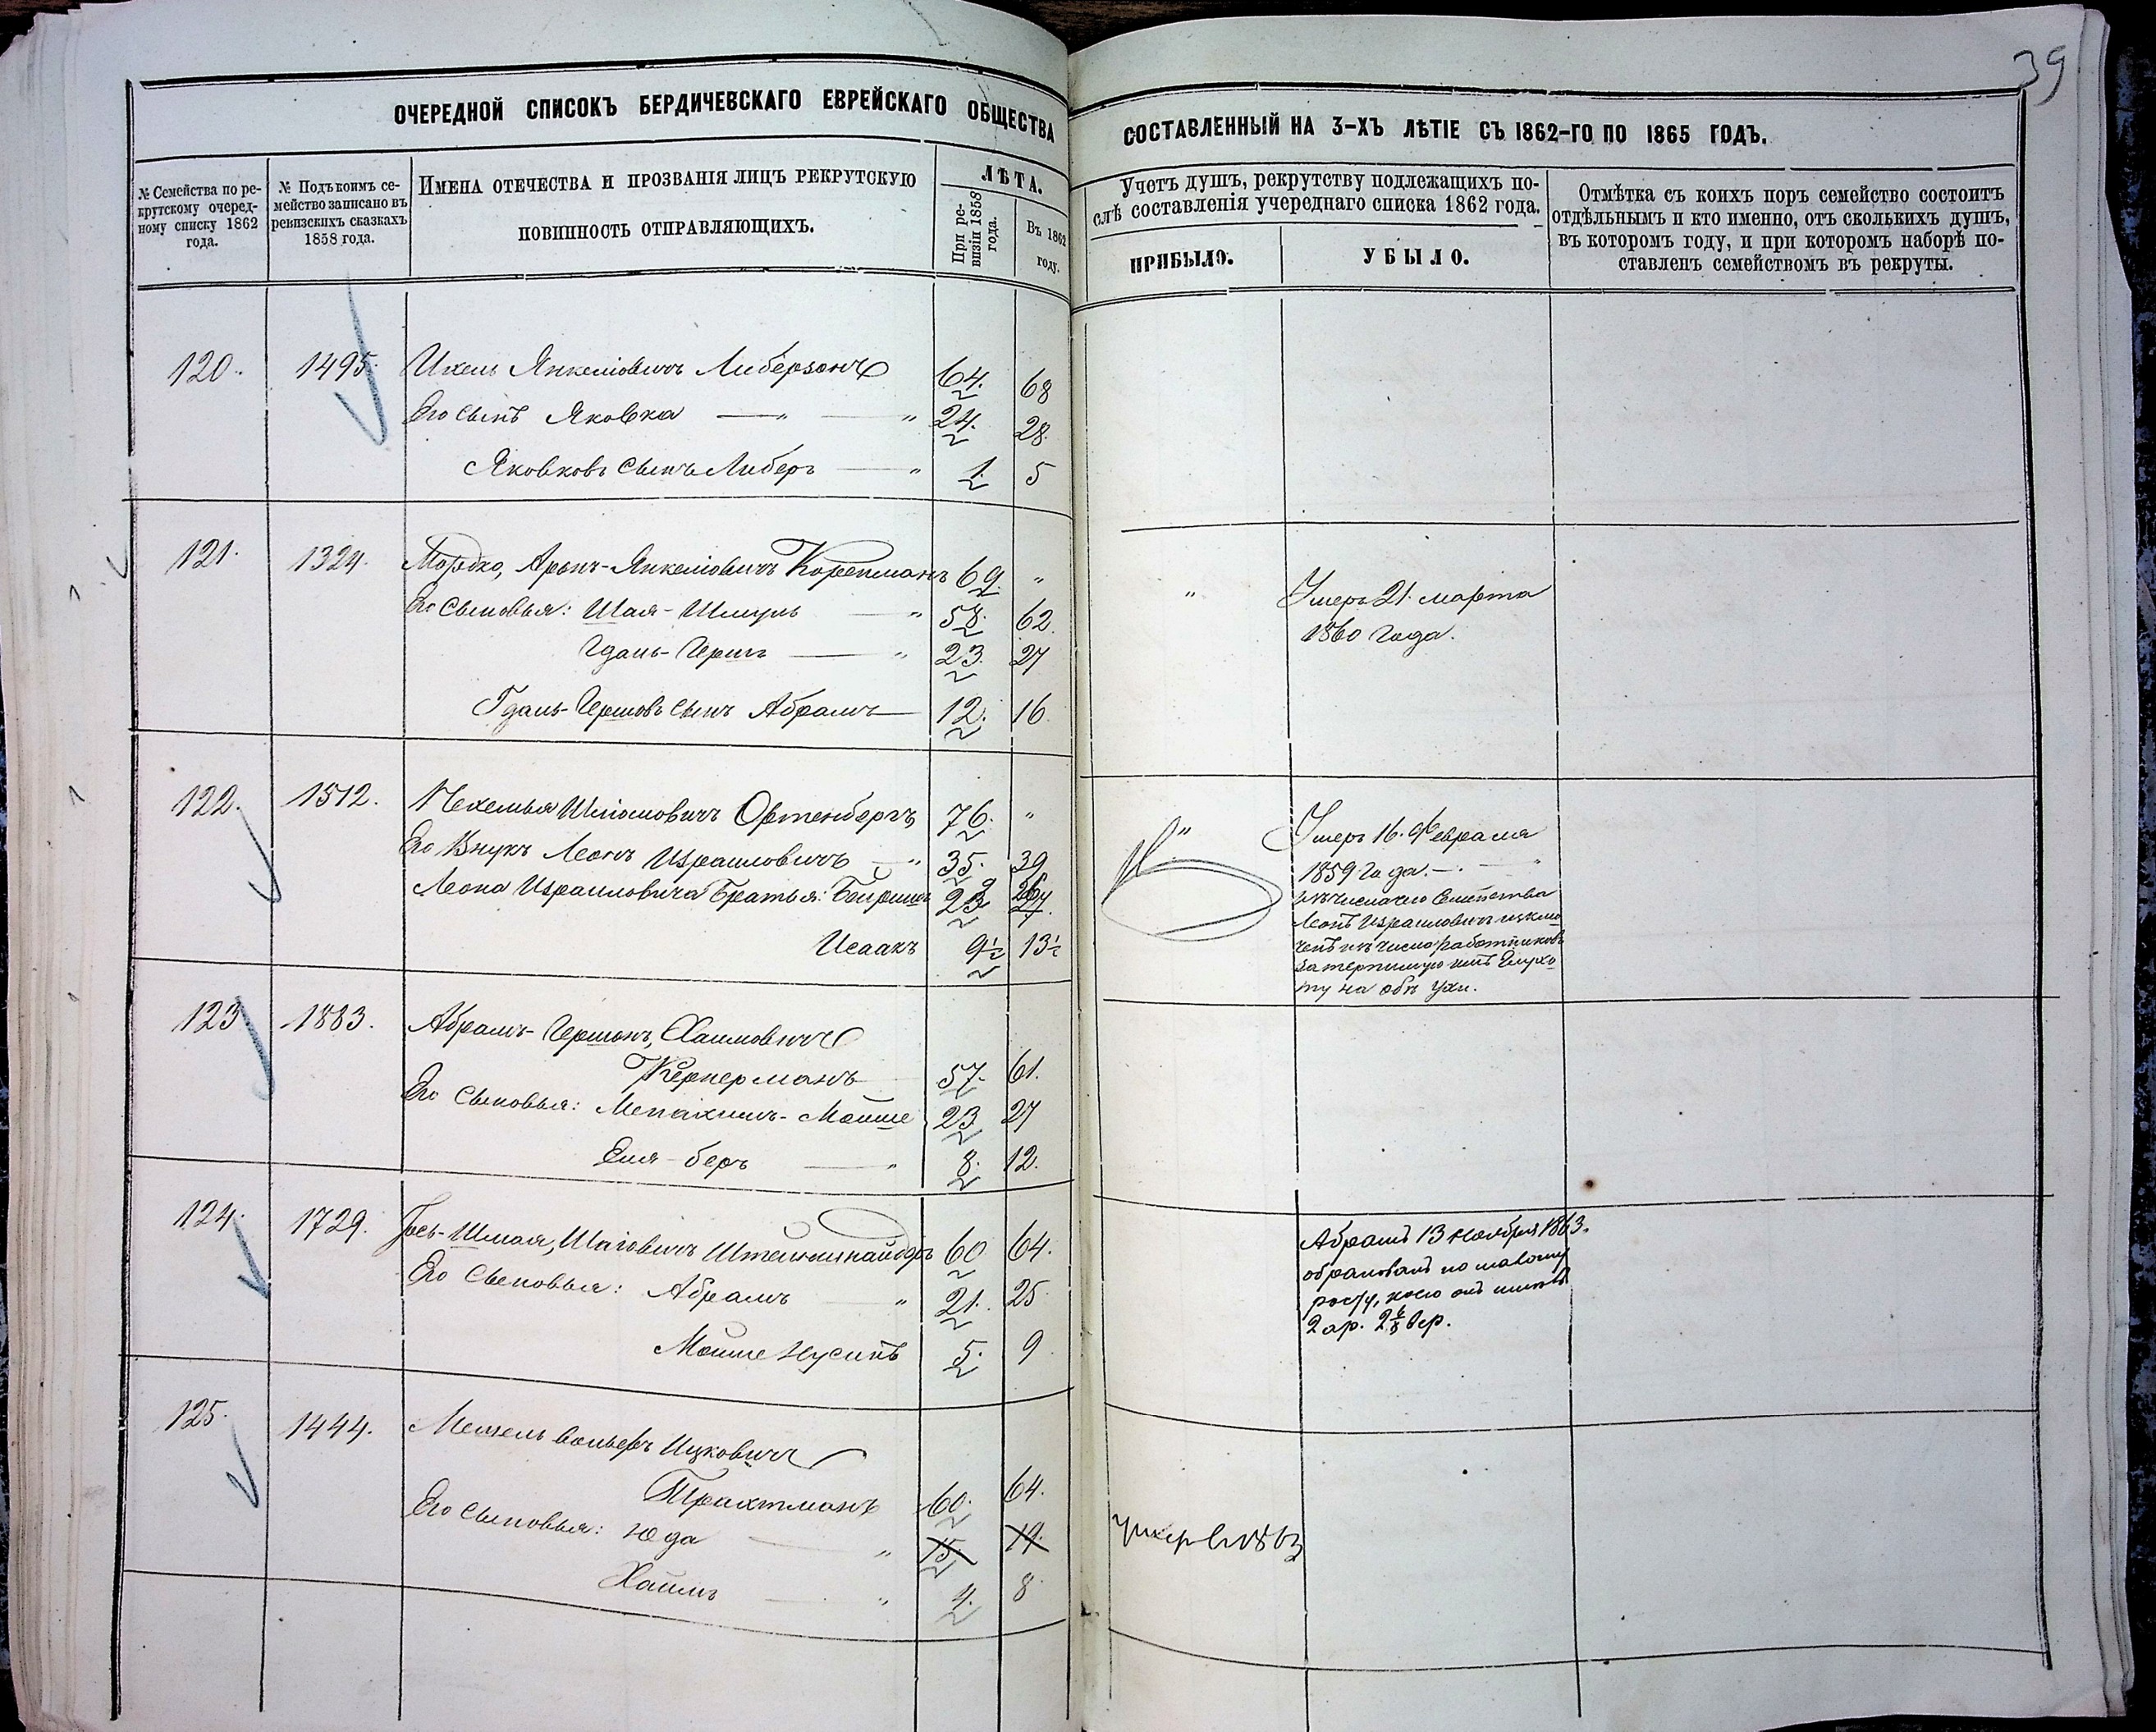 39
ОЧЕРЕДНОЙ СПИСОКЪ БЕРДИЧЕВСКАГО ЕВРЕЙСКАГО ОБЩЕСТВА
СОСТАВЛЕННЫЙ НА 3-ХЪ ЛѢТІЕ СЪ 1862-ГО ПО 1865 ГОДЪ.
№ Семейства по ре-
крутскому очеред-
ному списку 1862
года.
№ Подъ коимъ се-
мейство записано въ
ревизскихъ сказкахъ
1858 года.
ИМЕНА ОТЕЧЕСТВА И ПРОЗВАНІЯ ЛИЦЪ РЕКРУТСКУЮ
ПОВИННОСТЬ ОТПРАВЛЯЮЩИХЪ.
ЛѢТА.
При ре-
визіи 1858
года.
Въ 1862
году.
Учетъ душъ, рекрутству подлежащихъ по-
слѣ составленія учереднаго списка 1862 года.
ПРИБЫЛО.
УБЫЛО.
Отмѣтка съ коихъ поръ семейство состоитъ
отдѣльнымъ и кто именно, отъ сколькихъ душъ,
въ которомъ году, и при которомъ наборѣ по-
ставленъ семействомъ въ рекруты.
120. 1495. Ихель Янкеліовичъ Либерзонъ 64. 68
Его сынъ Яковка — " — " 24. 28.
Яковковъ сынъ Либеръ — " 1. 5
121. 1324. Мордко, Аронъ-Янкеліовичъ Коренманъ 69. "
Его сыновья: Шая-Шмуль — " 58. 62.
Гдаль-Гершъ — " 23. 27
Гдаль-Гершовъ сынъ Абрамъ — 12. 16.
" Умеръ 21. марта
1860 года.
122. 1512. Нехемья Шліомовичъ Ортенбергъ 76. "
Его Внукъ Леонъ Израиловичъ — " 35. 39
Леона Израиловича Братья: Беиришъ 23 27.
Исаакъ 9½ 13½
" Умеръ 16. Февраля
1859 года. —
изъ числа его Семейства
Леонъ Израиловичъ исклю
ченъ изъ числа работниковъ
за терпимую имъ Глухо
ту на обѣ ухи.
123. 1883. Абрамъ-Гершонъ, Хаимовичъ
Керперманъ 57. 61.
Его Сыновья: Менахимъ-Мойше 23 27
Еля-беръ — " 8. 12.
124. 1729. Іось-Шмая, Шаіовичъ 60 64.
Его Сыновья: Абрамъ " 21. 25
Мойше Нусинъ 5. 9
Абрамъ 13 Ноября 1863.
обракованъ по малому
росту, коего онъ имѣетъ
2 ар. 2 6/8 вер.
125. 1444. Мешель вольфъ Ицковичъ
Трахтманъ 60. 64.
Его Сыновья: Юда — " 15. 19.
Хаимъ — " 4. 8
умеръ въ 1863